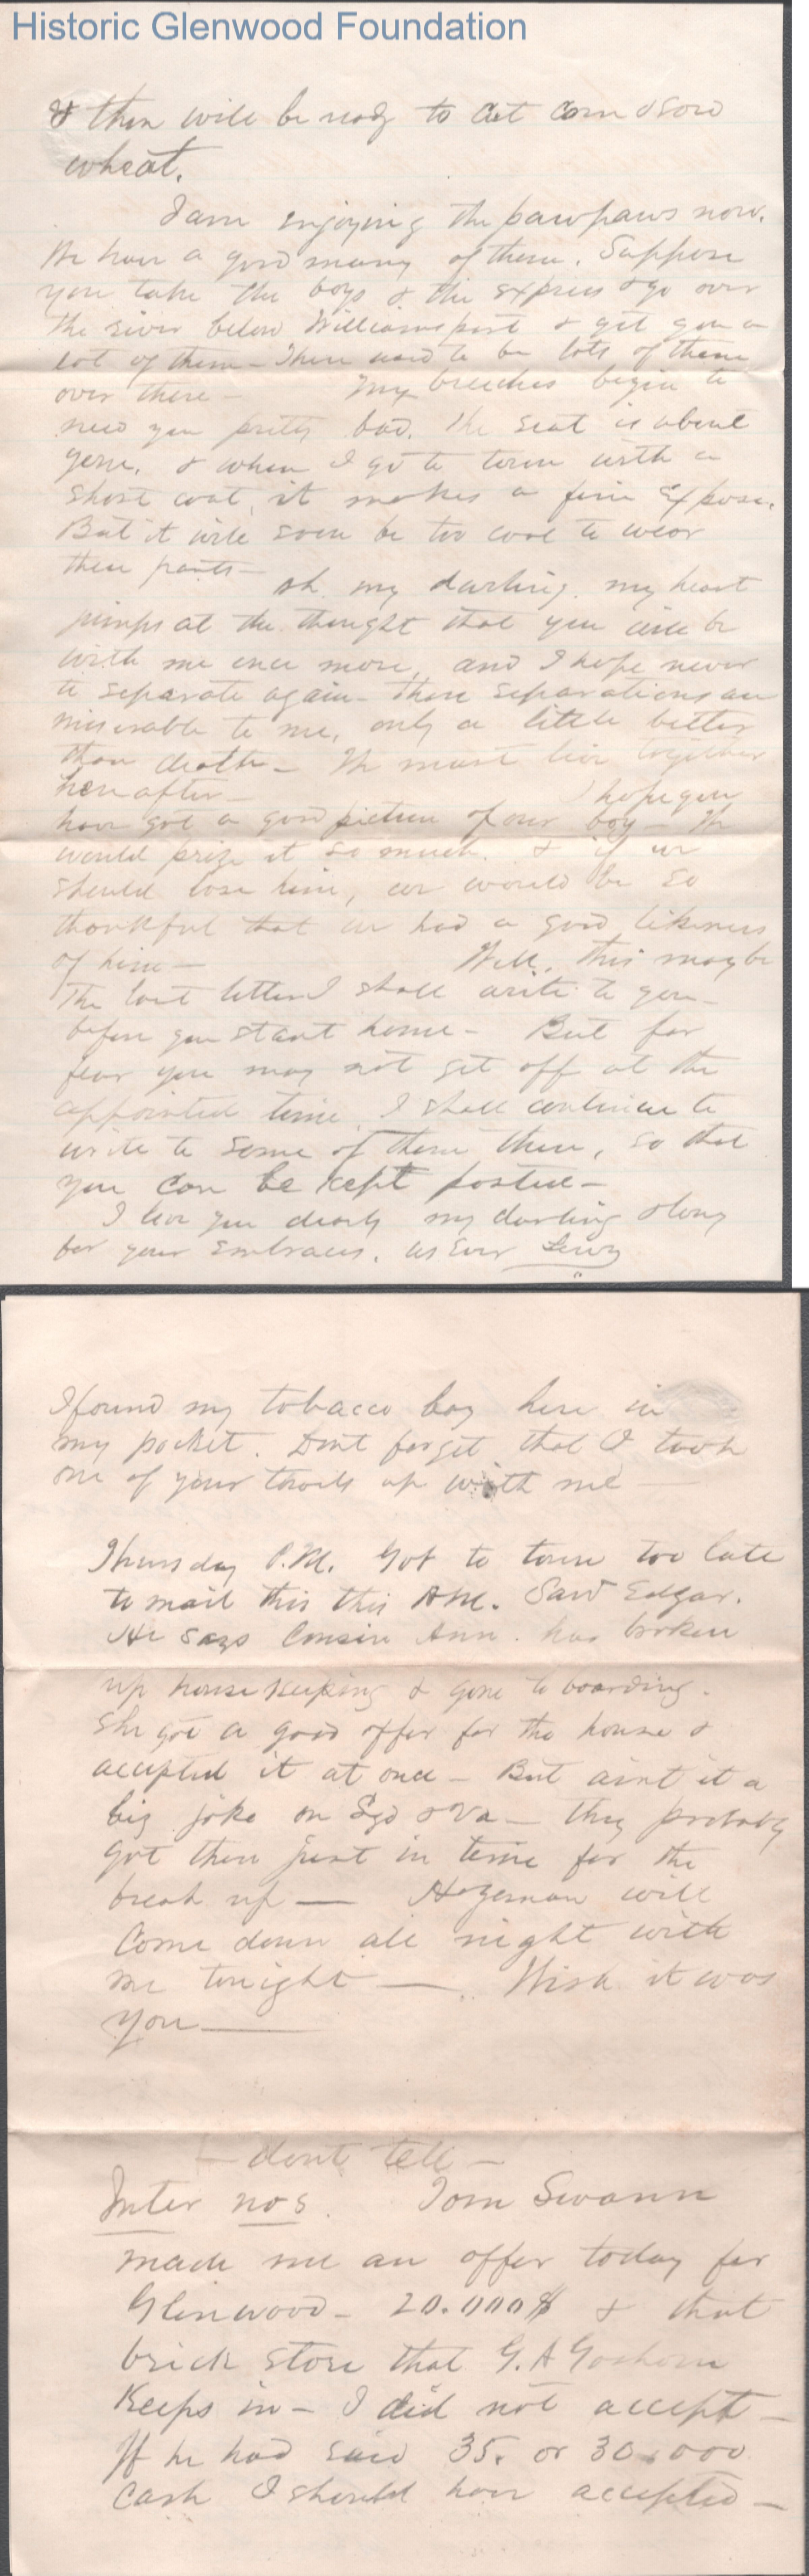 Historic Glenwood Foundation
& then will be ready to cut corn & sow
wheat.
I am enjoying the pawpaws now.
We have a good many of them. Suppose
you take the boys & the express & go over
the river below Williamsport & get you a
lot of them - There used to be lots of them
over there - My breeches begin to
need you pretty bad. The seat is about
gone. & when I go to town with a
short coat, it makes a fine expose.
But it will soon be too cool to wear
these pants - Oh my darling, my heart
jumps at the thought that you will be
with me once more, and I hope never
to separate again - These separations are
miserable to me, only a little better
than death - We must live together
hereafter - I hope you
have got a good picture of our boy - We
would prize it so much. & if we
should lose him, we would be so
thankful that we had a good likeness
of him - Well, this may be
the last letter I shall write to you -
before you start home - But for
fear you may not get off at the
appointed time, I shall continue to
write to some of them there, so that
you can be kept posted -
I love you dearly my darling & long
for your embraces. As ever Lewis
I found my tobacco bag here in
my pocket. Dont forget that I took
one of your towels up with me -
Thursday P.M. Got to town too late
to mail this this AM. Saw Edgar.
He says Cousin Ann has broken
up house keeping & gone to boarding.
She got a good offer for the house &
accepted it at once - But aint it a
big joke on & Va - they probably
got there just in time for the
break up - Hageman will
Come down all night with
me tonight - Wish it was
you -
- dont tell -
Inter nos. Tom Swann
made me an offer today for
Glenwood - 20.000$ & that
brick store that G. A Goshorn
Keeps in - I did not accept -
If he had said 35. or 30.000
Cash I should have accepted -